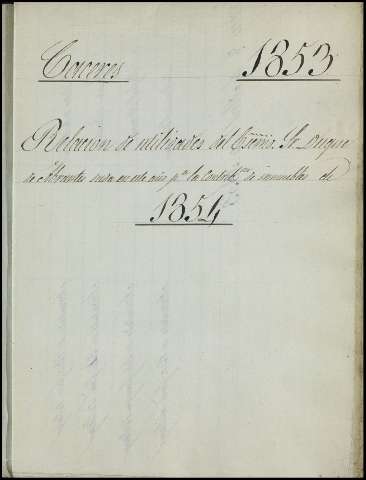 Caceres 1853
Relacion de utilidades del Exmo. Sr. Duque
de Abrantes en este año pa. la Contribon. de inmuebles de
1854